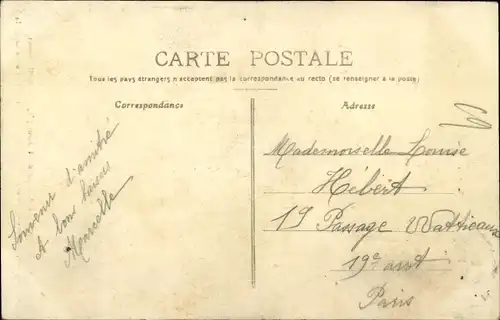 CARTE POSTALE
Tous les pays étrangers n'acceptent pas la correspondance au recto (se renseigner à la poste)
Correspondance
Adresse
Souvenir d'amitié
A bons baisers
Marcelle
Mademoiselle Louise
Hebert
19 Passage Wattieaux
19e arrt
Paris